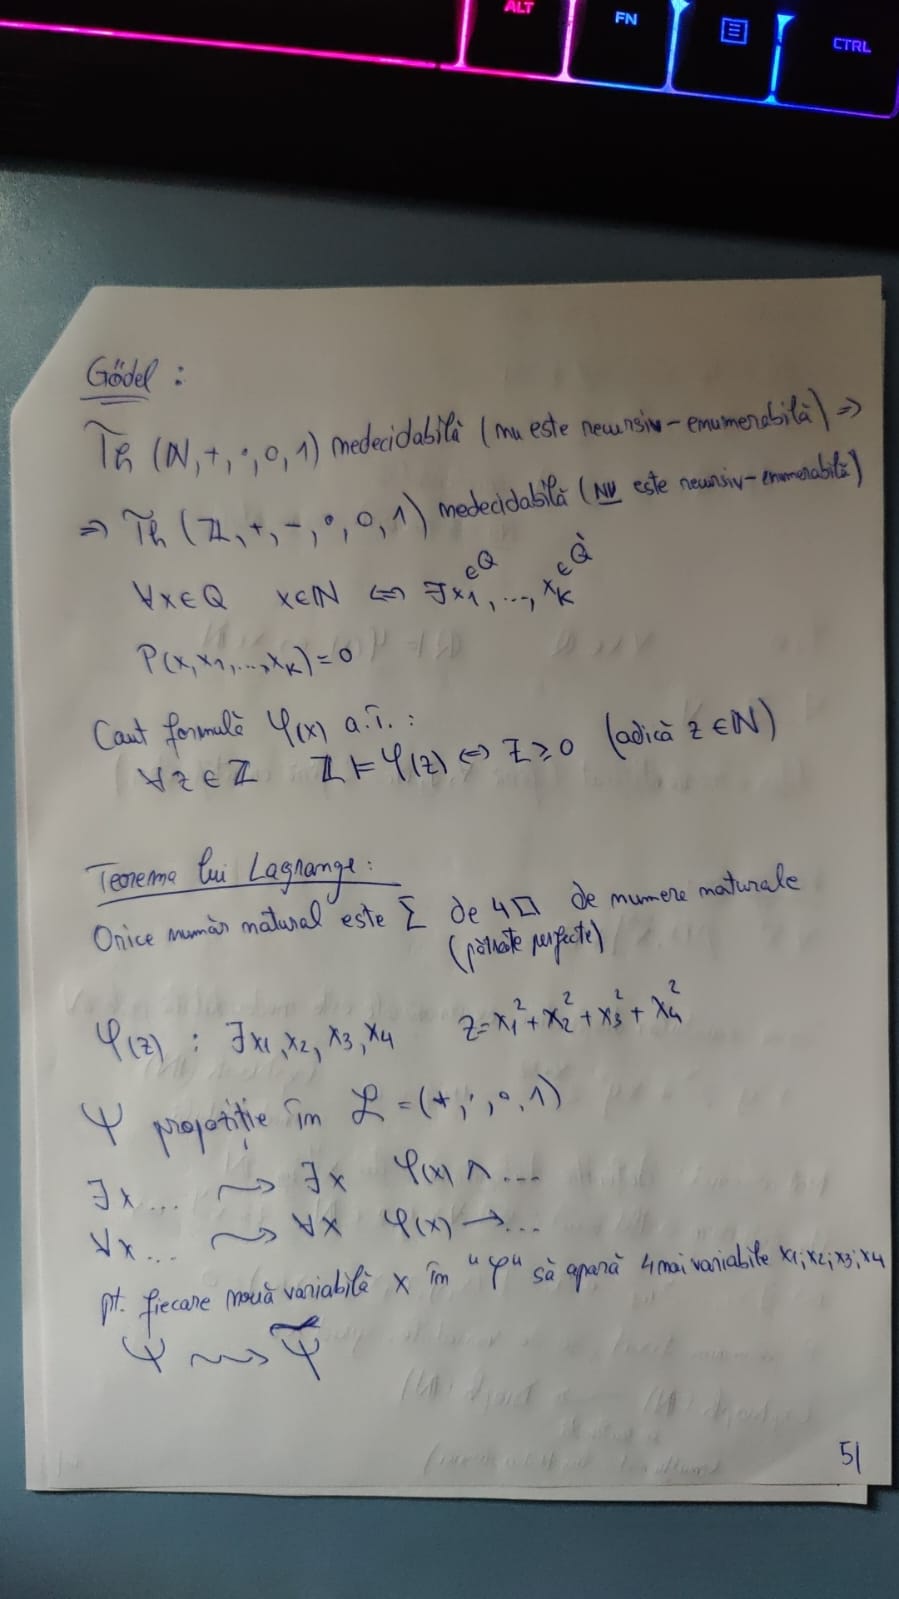 ALT
FN
CTRL
Gödel :
Th (ℕ, +, ·, 0, 1) nedecidabilă (nu este recursiv-enumerabilă) ⇒
⇒ Th (ℤ, +, -, ·, 0, 1) nedecidabilă (NU este recursiv-enumerabilă)
∀x∈Q x∈ℕ ⇔ ∃x1∈Q, ..., xK∈Q
P(x, x1, ..., xK) = 0
Caut formulă φ(x) a.î. :
∀z∈ℤ ℤ ⊨ φ(z) ⇔ z ≥ 0 (adică z∈ℕ)
Teorema lui Lagrange:
Orice număr natural este Σ de 4 □ de numere naturale
(pătrate perfecte)
φ(z) : ∃x1, x2, x3, x4 z = x1² + x2² + x3² + x4²
Ψ propoziție în ℒ = (+, ·, 0, 1)
∃x ... ⇝ ∃x φ(x) ∧ ...
∀x ... ⇝ ∀x φ(x) → ...
pt. fiecare nouă variabilă x în "φ" să apară 4 noi variabile x1; x2; x3; x4
Ψ ⇝ Ψ̃
51